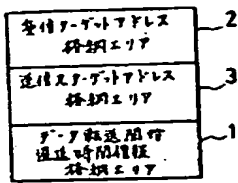 受信ターゲットアドレス
格納エリア
2
送信元ターゲットアドレス
格納エリア
3
データ転送開始
遅延時間情報
格納エリア
1